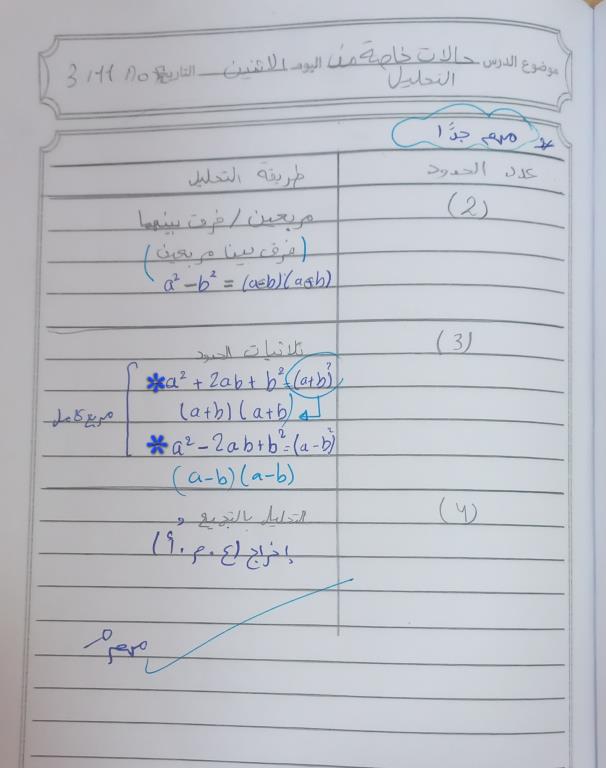 موضوع الدرس حالات خاصة من التحليل اليوم الاثنين التاريخ
* مهم جدًا
عدد الحدود طريقة التحليل
(2) مربعين / فرق بينهما
(فرق بين مربعين)
a² - b² = (a-b)(a+b)
(3) ثلاثيات الحدود
* a² + 2ab + b² = (a+b)²
(a+b)(a+b)
مربع كامل
* a² - 2ab + b² = (a-b)²
(a-b)(a-b)
(4) التحليل بالتجميع و
إخراج (ع.م.أ)
مهم